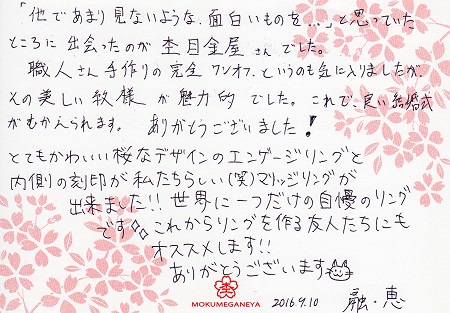 「他であまり見ないような、面白いものを…」と思っていた
ところに出会ったのが杢目金屋さんでした。
職人さん手作りの完全ワンオフ、というのも気に入りましたが、
その美しい紋様が魅力的でした。これで、良い結婚式
がむかえられます。ありがとうございました!
とてもかわいい桜なデザインのエンゲージリングと
内側の刻印が私たちらしい(笑)マリッジリングが
出来ました!!世界に一つだけの自慢のリング
です。これからリングを作る友人たちにも
オススメします!!
ありがとうございます
MOKUMEGANEYA
2016.9.10
融・恵